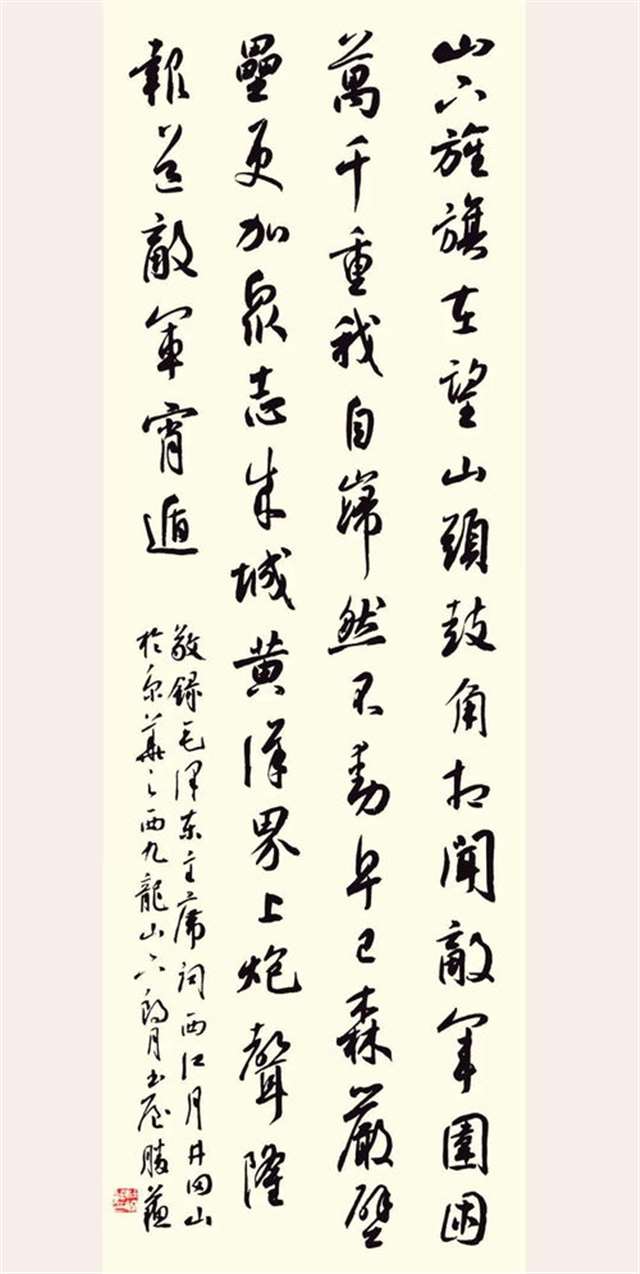 山下旌旗在望山頭鼓角相聞敵軍圍困
萬千重我自巋然不動早已森嚴壁
壘更加衆志成城黃洋界上炮聲隆
報道敵軍宵遁
敬錄毛澤東主席詞西江月井岡山
於京華之西九龍山下朗月書屋勝